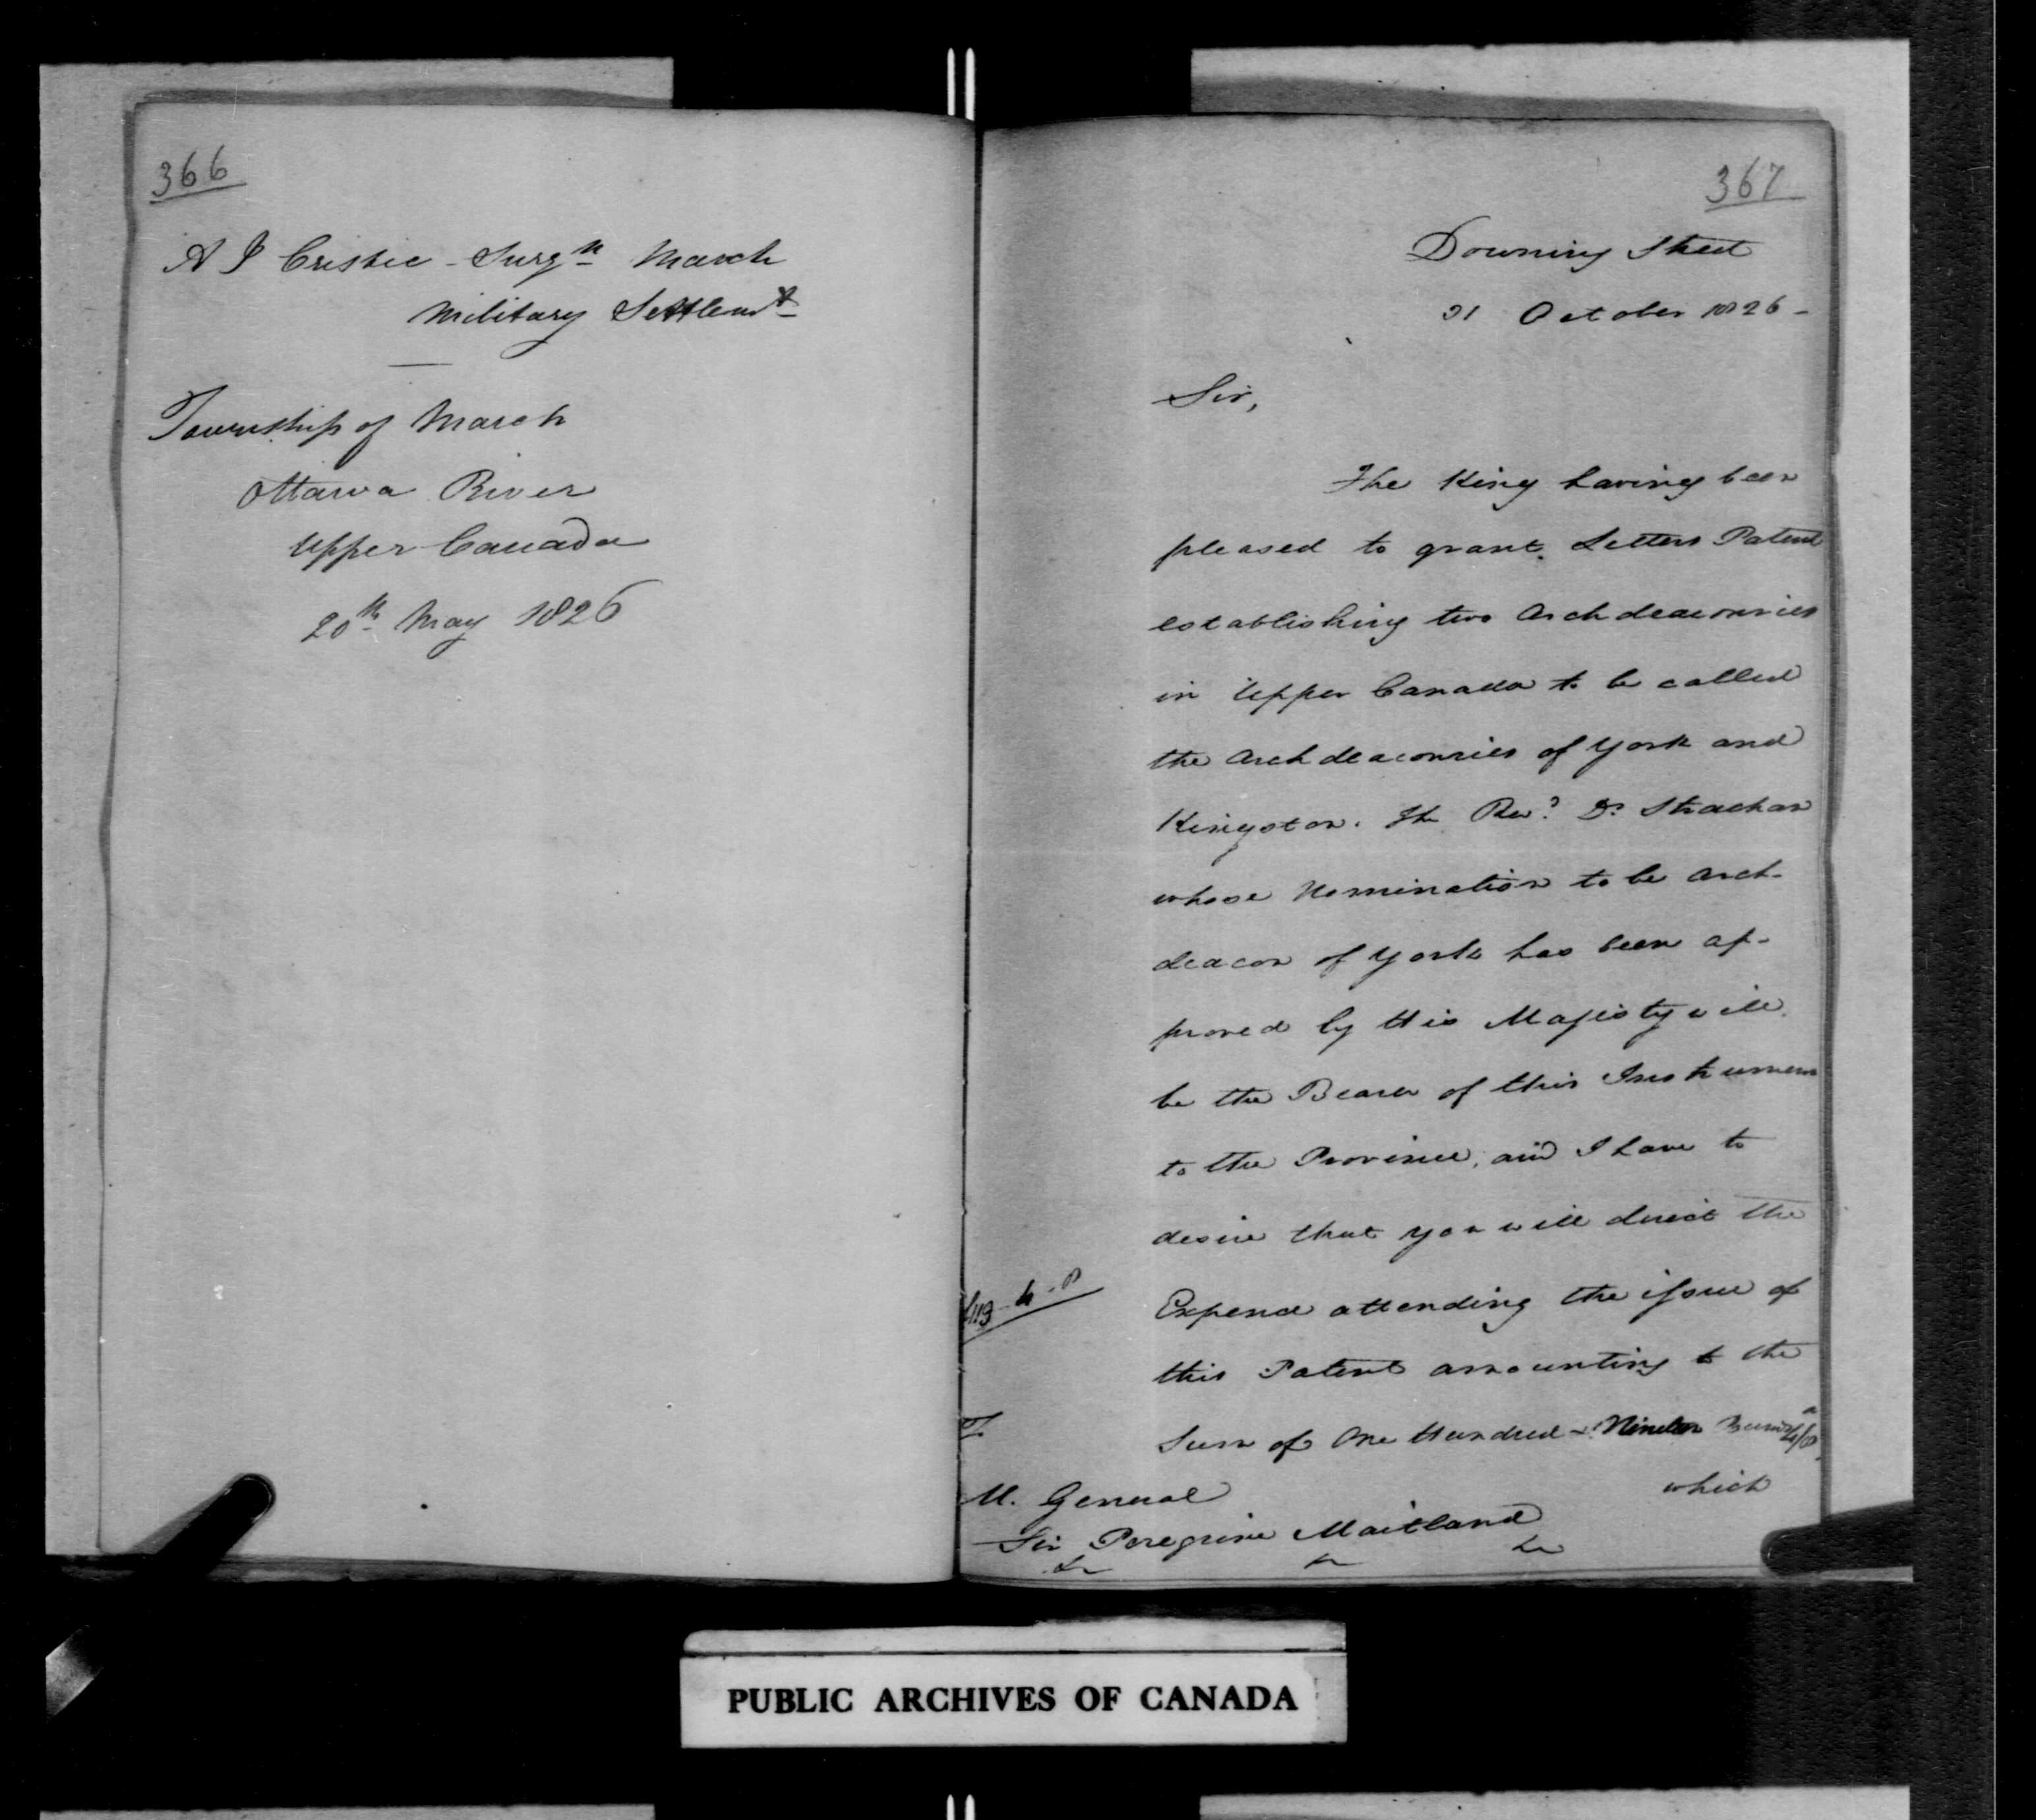 366
A J Cristie - Surgn March
Military Settlemt
Township of March
Ottawa River
Upper Canada
20th May 1826
367
Downing Street
31 October 1826 -
Sir,
The King having been
pleased to grant Letters Patent
establishing two Archdeaconries
in Upper Canada to be called
the Archdeaconries of York and
Kingston. The Revd Dr Strachan
whose Nomination to be Arch-
deacon of York has been ap-
proved by His Majesty will
be the Bearer of this Instrument
to the Province, and I have to
desire that you will direct the
Expence attending the issue of
this Patent amounting to the
Sum of One Hundred & Nineteen 4/8
£119-4-8
which
M. General
Sir Peregrine Maitland
PUBLIC ARCHIVES OF CANADA